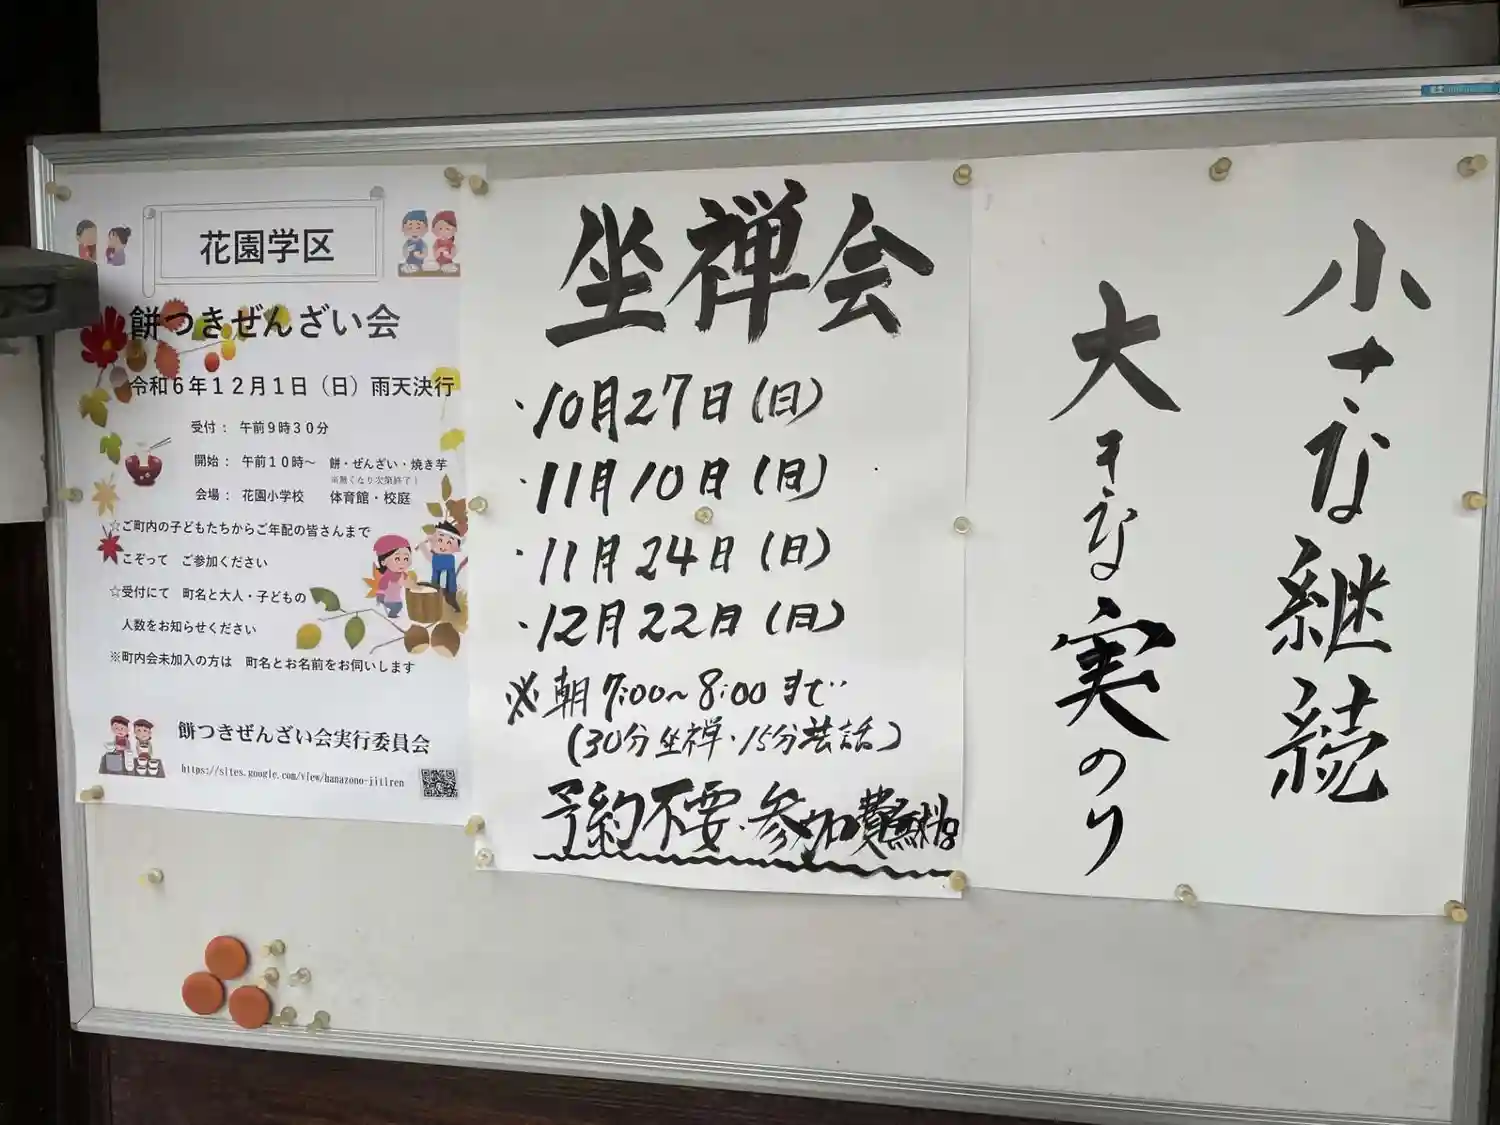 花園学区
餅つきぜんざい会
令和6年12月1日（日）雨天決行
受付： 午前9時30分
開始： 午前10時～ 餅・ぜんざい・焼き芋
※無くなり次第終了！
会場： 花園小学校 体育館・校庭
☆ご町内の子どもたちからご年配の皆さんまで
こぞって ご参加ください
☆受付にて 町名と大人・子どもの
人数をお知らせください
※町内会未加入の方は 町名とお名前をお伺いします
餅つきぜんざい会実行委員会
https://sites.google.com/view/hanazono-jitiren
坐禅会
・10月27日（日）
・11月10日（日）
・11月24日（日）
・12月22日（日）
※朝7:00～8:00まで
（30分坐禅・15分法話）
予約不要・参加費無料
小さな継続
大きな実のり